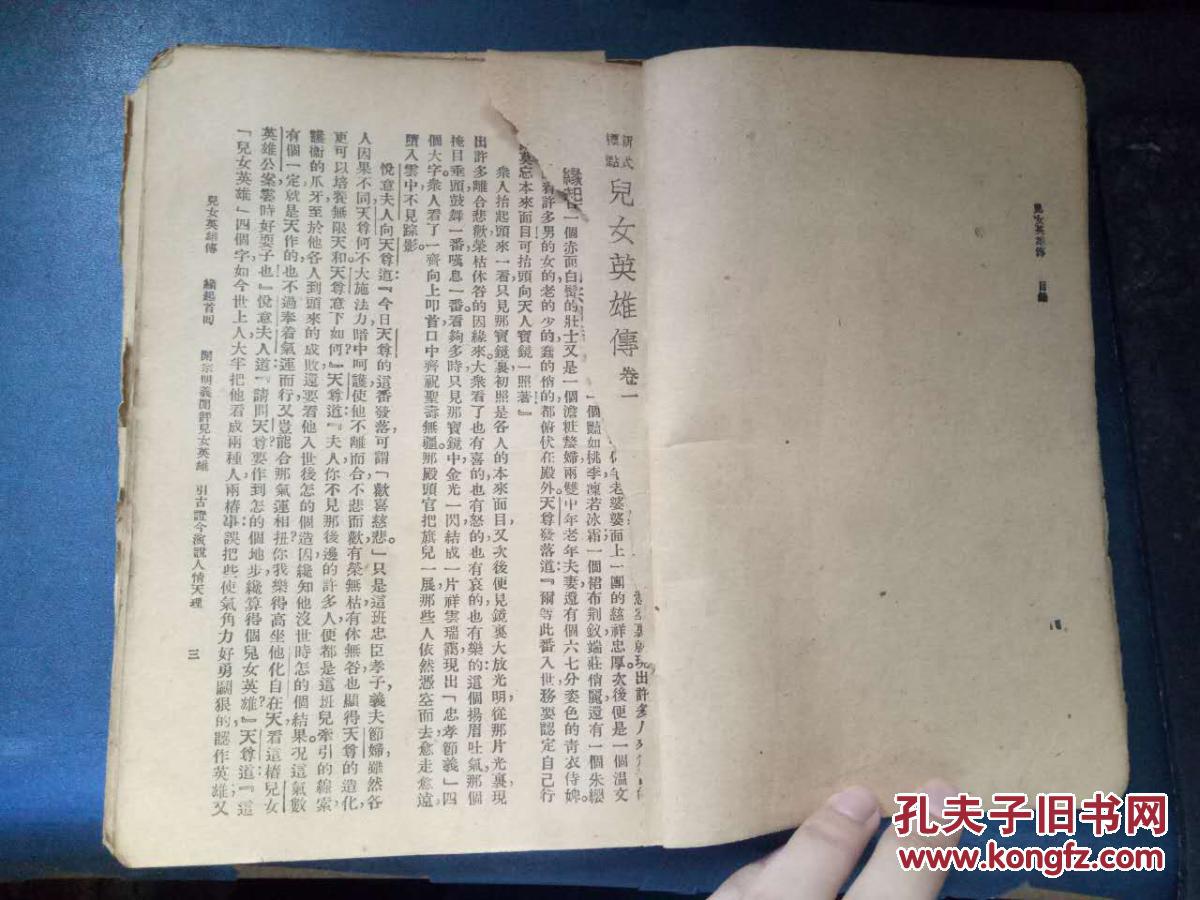 兒女英雄傳 目錄
憑空裏就現出許多人來
新式標點 兒女英雄傳 卷一
老婆婆面上一團的慈祥忠厚次後便是一個溫文
緣起首 一個赤面白鬚的壯士又是一個澹粧嫠婦兩雙中年老年夫妻還有個六七分姿色的青衣侍婢。
個豔如桃李凜若冰霜一個裙布荆釵端莊俏麗還有一個朱纓
看許多男的女的老的少的蠢的俏的都俯伏在殿外天尊發落道『爾等此番入世務要認定自己行
莫忘本來面目可抬頭向天人寶鏡一照著』
衆人抬起頭來一看只見那寶鏡裏初照是各人的本來面目又次後便見鏡裏大放光明從那片光裏現
出許多離合悲歡榮枯休咎的因緣來大衆看了也有喜的也有怒的也有哀的也有樂的這個揚眉吐氣那個
掩目垂頭鼓舞一番嘆息一番。看夠多時只見那寶鏡中金光一閃結成一片祥雲瑞靄現出「忠孝節義」四
個大字衆人看了一齊向上叩首口中齊祝聖壽無疆。那殿頭官把旗兒一展那些人依然憑空而去愈走愈遠
墮入雲中不見踪影。
悅意夫人向天尊道:『今日天尊的這番發落可謂「歡喜慈悲」。只是這班忠臣孝子義夫節婦,雖然各
人因果不同天尊何不大施法力暗中呵護使他不離而合不悲而歡有榮無枯有休無咎也顯得天尊的造化,
更可以培養無限天和天尊意下如何?』天尊道:『夫人你不見那後邊的許多人便都是這班兒牽引的線索,
護衞的爪牙至於他各人到頭來的成敗還要看他入世後怎的個造因纔知他沒世時怎的個結果。況這氣數
有個一定就是天作的也不過奉着氣運而行又豈能合那氣運相扭你我樂得高坐他化自在天看這樁兒女
英雄公案霎時好耍子也』悅意夫人道:『請問天尊要作到怎的個地步纔算得個兒女英雄?』天尊道:『這
「兒女英雄」四個字如今世上人大半把他看成兩種人,兩樁事,誤把些使氣角力好勇鬬狠的認作英雄又
兒女英雄傳 緣起首回 開宗明義閒評兒女英雄 引古證今演說人情天理 三
孔夫子旧书网
www.kongfz.com